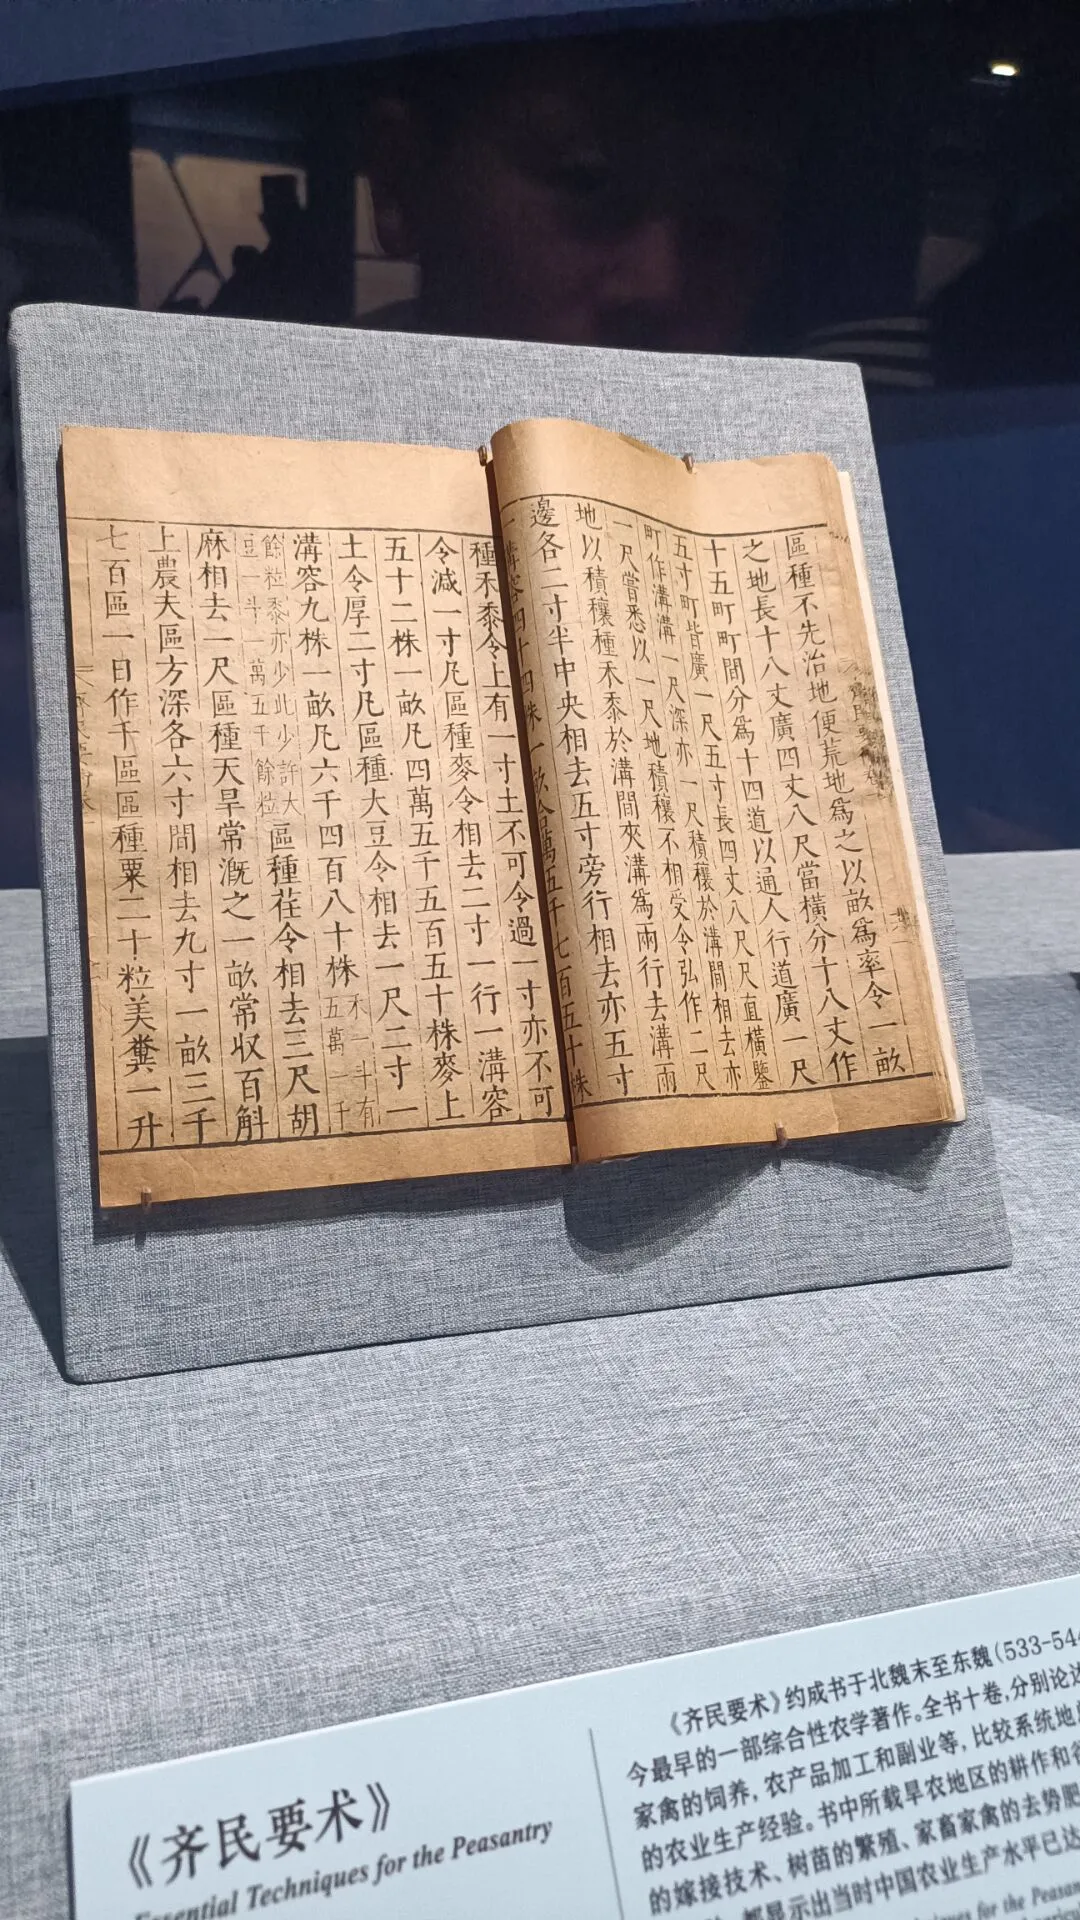 區種不先治地便荒地爲之以畝爲率令一畝
之地長十八丈廣四丈八尺當橫分十八丈作
十五町町間分爲十四道以通人行道廣一尺
五寸町皆廣一尺五寸長四丈八尺尺直橫鑿
町作溝溝一尺深亦一尺積穰於溝間相去亦
一尺嘗悉以一尺地積穰不相受令弘作二尺
地以積穰種禾黍於溝間夾溝爲兩行去溝兩
邊各二寸半中央相去五寸旁行相去亦五寸
一溝容四十四株一畝合萬五千七百五十株
種禾黍令上有一寸土不可令過一寸亦不可
令減一寸凡區種麥令相去二寸一行一溝容
五十二株一畝凡四萬五千五百五十株麥上
土令厚二寸凡區種大豆令相去一尺二寸一
溝容九株一畝凡六千四百八十株禾一斗有五萬一千
餘粒黍亦少此少許大豆一斗一萬五千餘粒區種荏令相去三尺胡
麻相去一尺區種天旱常溉之一畝常収百斛
上農夫區方深各六寸間相去九寸一畝三千
七百區一日作千區區種粟二十粒美糞一升
《齐民要术》
Essential Techniques for the Peasantry
《齐民要术》约成书于北魏末至东魏(533-544
今最早的一部综合性农学著作。全书十卷,分别论述
家禽的饲养,农产品加工和副业等,比较系统地
的农业生产经验。书中所载旱农地区的耕作和
的嫁接技术、树苗的繁殖、家畜家禽的去势肥
都显示出当时中国农业生产水平已达
for the Peasan